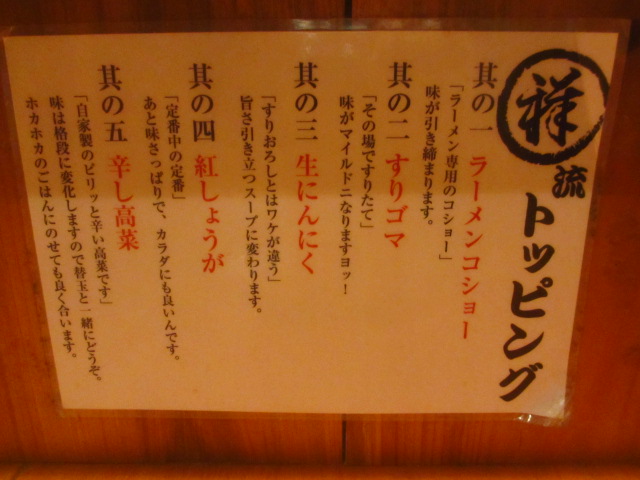 祥流トッピング
其の一 ラーメンコショー
「ラーメン専用のコショー」
味が引き締まります。
其の二 すりゴマ
「その場ですりたて」
味がマイルドニなりますヨッ!
其の三 生にんにく
「すりおろしとはワケが違う」
旨さ引き立つスープに変わります。
其の四 紅しょうが
「定番中の定番」
あと味さっぱりで、カラダにも良いんです。
其の五 辛し高菜
「自家製のピリッと辛い高菜です」
味は格段に変化しますので替玉と一緒にどうぞ。
ホカホカのごはんにのせても良く合います。